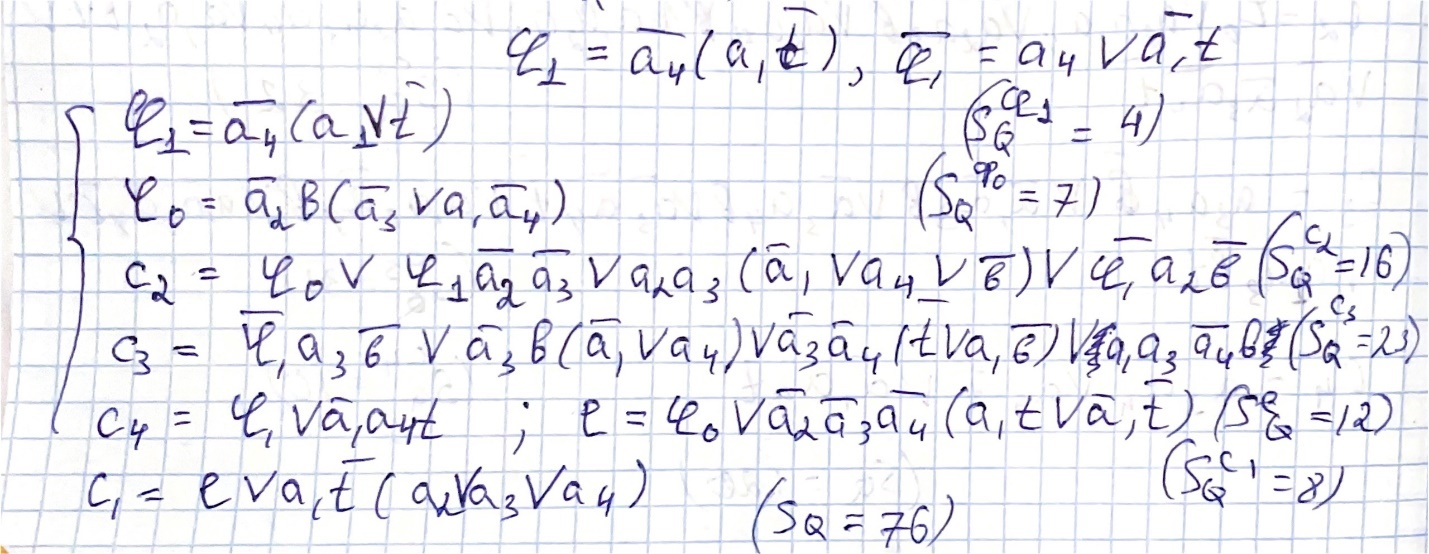 φ₁ = a̅₄(a₁ t̅), φ̅₁ = a₄ ∨ a̅₁t
φ₁ = a̅₄(a₁∨t̅) (S_Q^φ₁ = 4)
φ₀ = a̅₂в(a̅₃ ∨ a₁a̅₄) (S_Q^φ₀ = 7)
c₂ = φ₀ ∨ φ₁a̅₂a̅₃ ∨ a₂a₃(a̅₁ ∨ a₄ ∨ в̅) ∨ φ̅₁a₂в̅ (S_Q^c₂ = 16)
c₃ = φ̅₁a₃в̅ ∨ a̅₃в(a̅₁ ∨ a₄) ∨ a̅₃a̅₄(t̅ ∨ a₁в̅) ∨ a₁a₃a̅₄в (S_Q^c₃ = 23)
c₄ = φ₁ ∨ a̅₁a₄t ; e = φ₀ ∨ a̅₂a̅₃a̅₄(a₁t ∨ a̅₁t̅) (S_Q^e = 12)
c₁ = e ∨ a₁t̅(a₂∨a₃∨a₄) (S_Q^c₁ = 8)
(S_Q = 76)